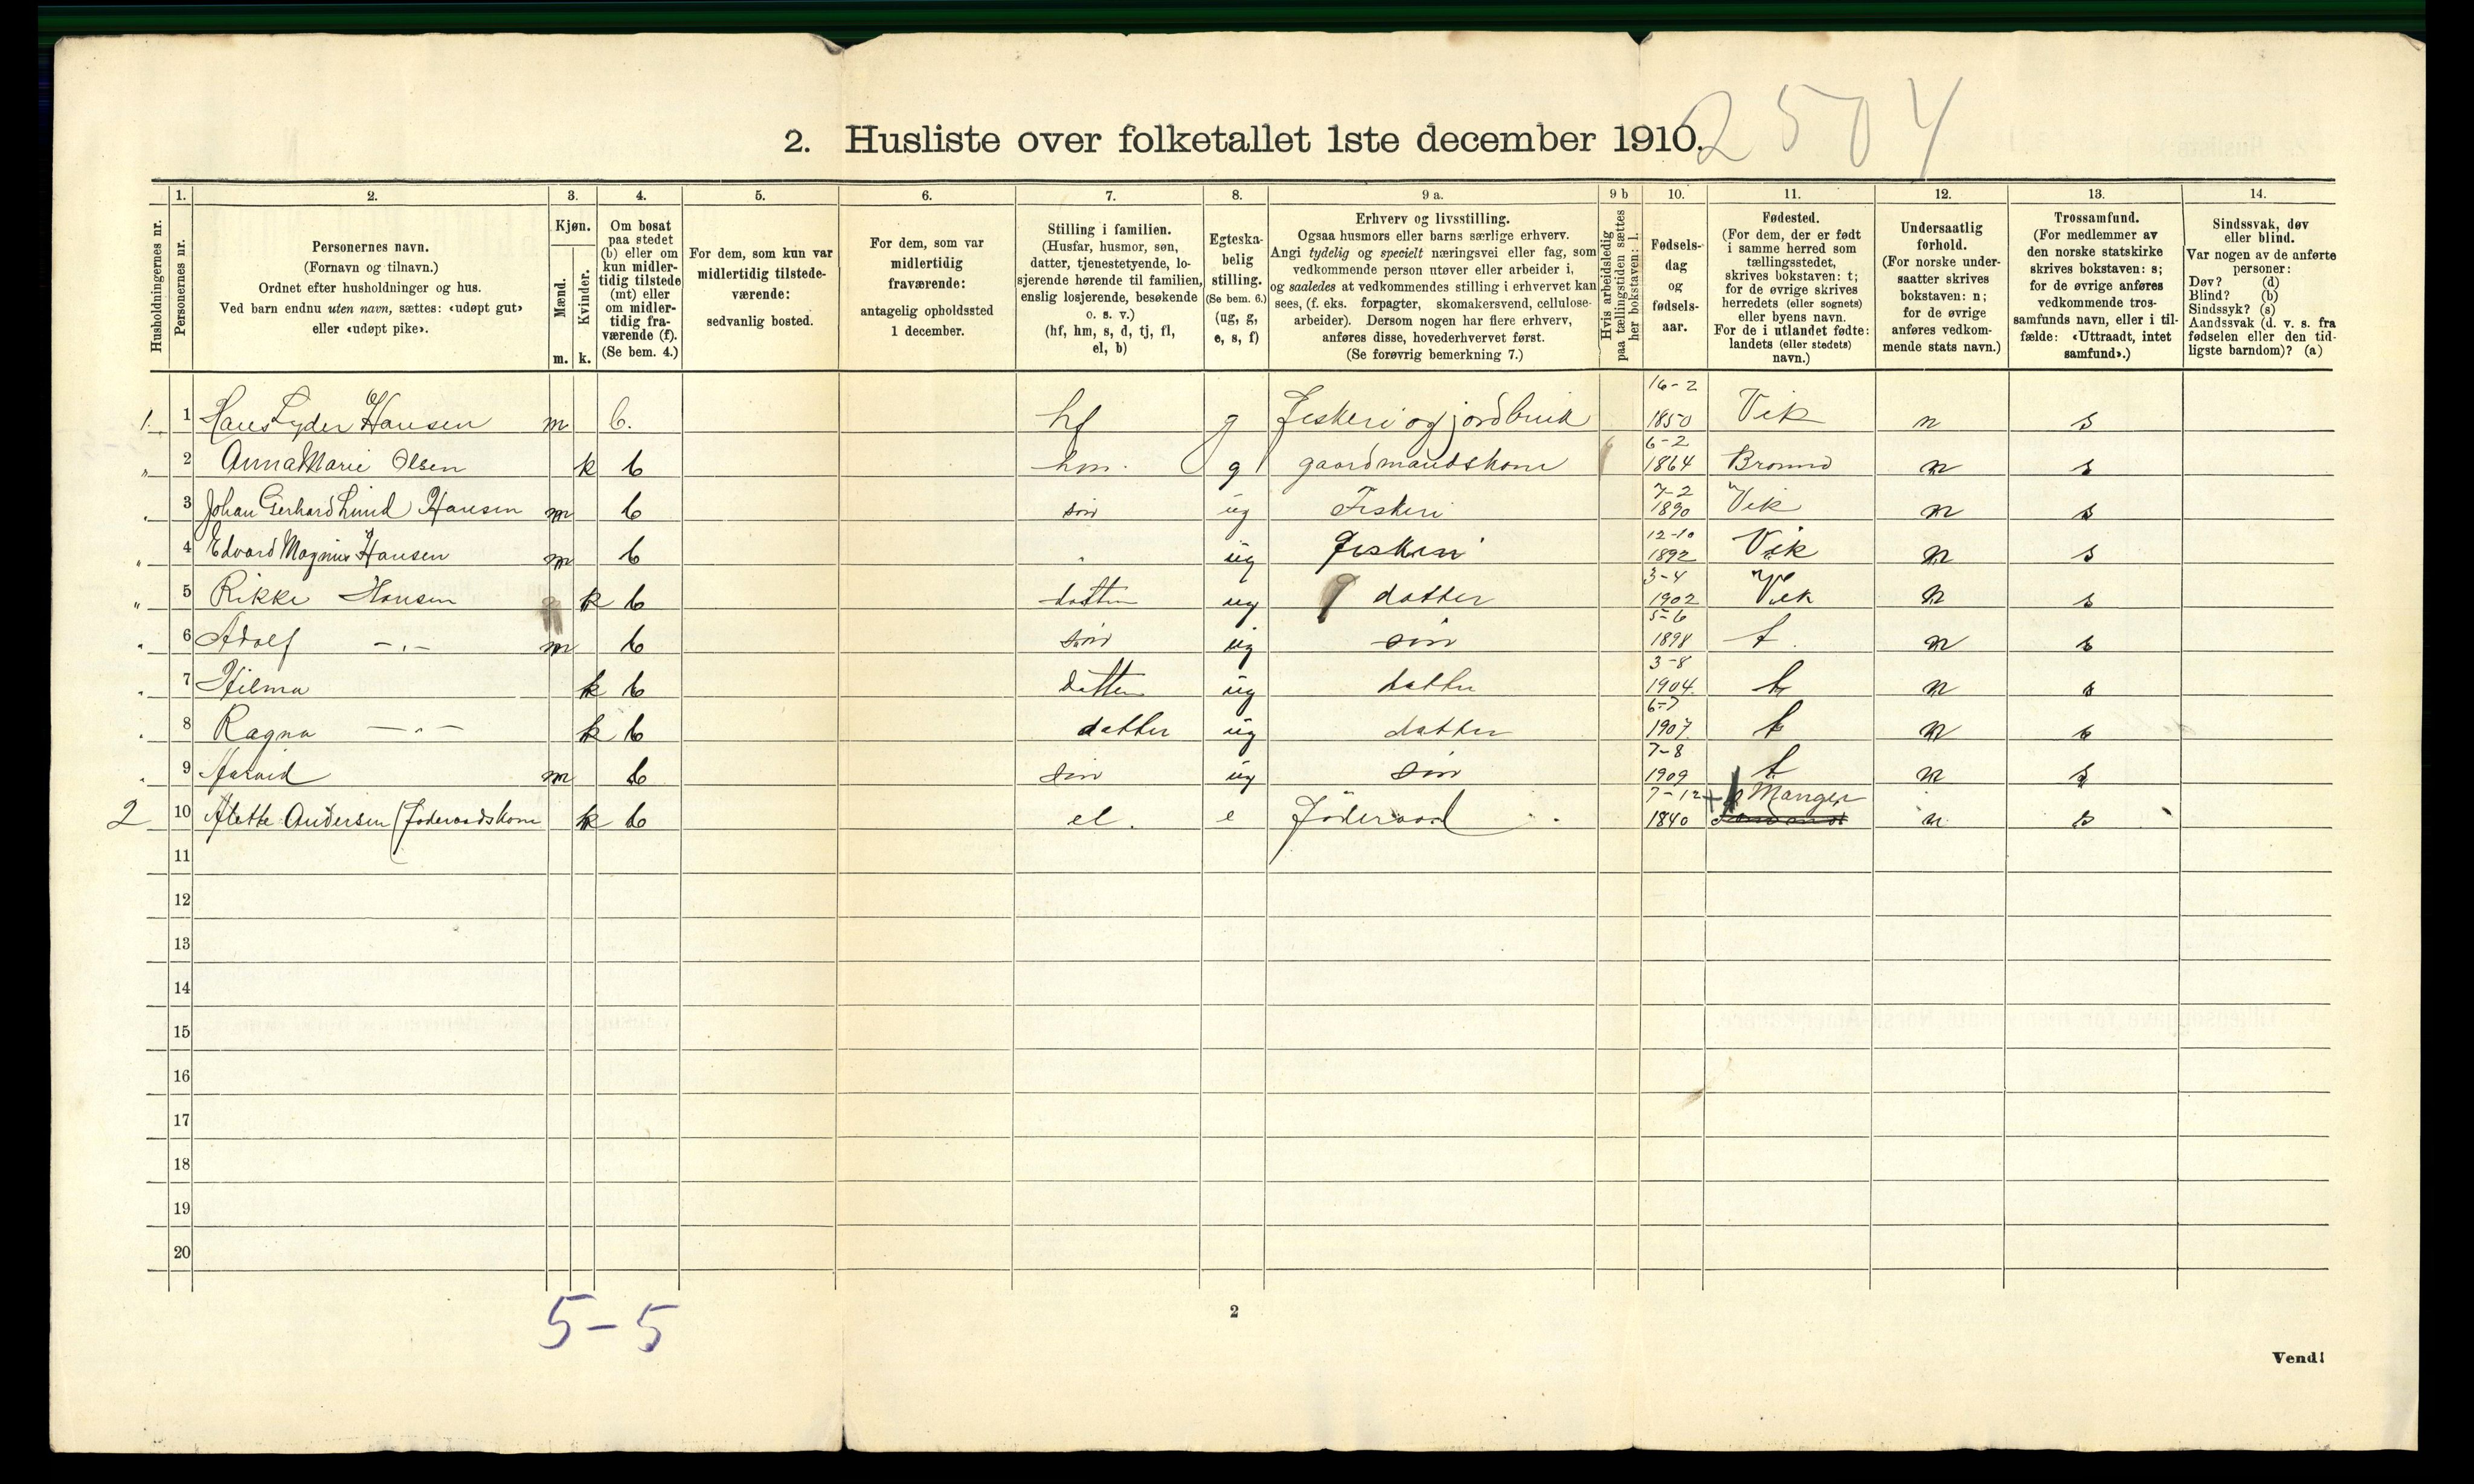 2504
2. Husliste over folketallet 1ste december 1910.
1. 2. 3. 4. 5. 6. 7. 8. 9 a. 9 b 10. 11. 12. 13. 14.
Husholdningernes nr.
Personernes nr.
Personernes navn.
(Fornavn og tilnavn.)
Ordnet efter husholdninger og hus.
Ved barn endnu uten navn, sættes: «udøpt gut»
eller «udøpt pike».
Kjøn.
Mænd.
m.
Kvinder.
k.
Om bosat
paa stedet
(b) eller om
kun midler-
tidig tilstede
(mt) eller
om midler-
tidig fra-
værende (f).
(Se bem. 4.)
For dem, som kun var
midlertidig tilstede-
værende:
sedvanlig bosted.
For dem, som var
midlertidig
fraværende:
antagelig opholdssted
1 december.
Stilling i familien.
(Husfar, husmor, søn,
datter, tjenestetyende, lo-
sjerende hørende til familien,
enslig losjerende, besøkende
o. s. v.)
(hf, hm, s, d, tj, fl,
el, b)
Egteska-
belig
stilling.
(Se bem. 6.)
(ug, g,
e, s, f)
Erhverv og livsstilling.
Ogsaa husmors eller barns særlige erhverv.
Angi tydelig og specielt næringsvei eller fag, som
vedkommende person utøver eller arbeider i,
og saaledes at vedkommendes stilling i erhvervet kan
sees, (f. eks. forpagter, skomakersvend, cellulose-
arbeider). Dersom nogen har flere erhverv,
anføres disse, hovederhvervet først.
(Se forøvrig bemerkning 7.)
Hvis arbeidsledig
paa tællingstiden sættes
her bokstaven: l.
Fødsels-
dag
og
fødsels-
aar.
Fødested.
(For dem, der er født
i samme herred som
tællingsstedet,
skrives bokstaven: t;
for de øvrige skrives
herredets (eller sognets)
eller byens navn.
For de i utlandet fødte:
landets (eller stedets)
navn.)
Undersaatlig
forhold.
(For norske under-
saatter skrives
bokstaven: n;
for de øvrige
anføres vedkom-
mende stats navn.)
Trossamfund.
(For medlemmer av
den norske statskirke
skrives bokstaven: s;
for de øvrige anføres
vedkommende tros-
samfunds navn, eller i til-
fælde: «Uttraadt, intet
samfund».)
Sindssvak, døv
eller blind.
Var nogen av de anførte
personer:
Døv? (d)
Blind? (b)
Sindssyk? (s)
Aandssvak (d. v. s. fra
fødselen eller den tid-
ligste barndom)? (a)
1. 1 Hans Lyder Hansen m b. hf g Fiskeri og jordbruk 16-2 1850 Vik n s
" 2 Anna Marie Olsen k b hm. g gaardmandskone 6-2 1864 Brønnø n s
" 3 Johan Gerhard Lund Hansen m b søn ug Fiskeri 7-2 1890 Vik n s
" 4 Edvard Magnus Hansen m b " ug Fiskeri 12-10 1892 Vik n s
" 5 Rikke Hansen k b datter ug datter 3-4 1902 Vik n s
" 6 Adolf -"- m b søn ug søn 5-6 1898 t. n s
" 7 Hilma k b datter ug datter 3-8 1904. t n s
" 8 Ragna -"- k b datter ug datter 6-7 1907 t n s
" 9 Harald m b søn ug søn 7-8 1909 t n s
2 10 Alette Andersen (Føderaadskone k b el. e Føderaad 7-12 1840 + Manger n s
11
12
13
14
15
16
17
18
19
20
5-5
2
Vend!